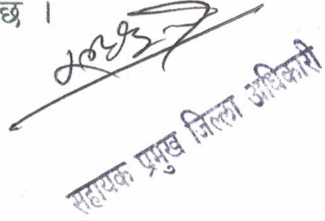 छ ।
सहायक प्रमुख जिल्ला अधिकारी